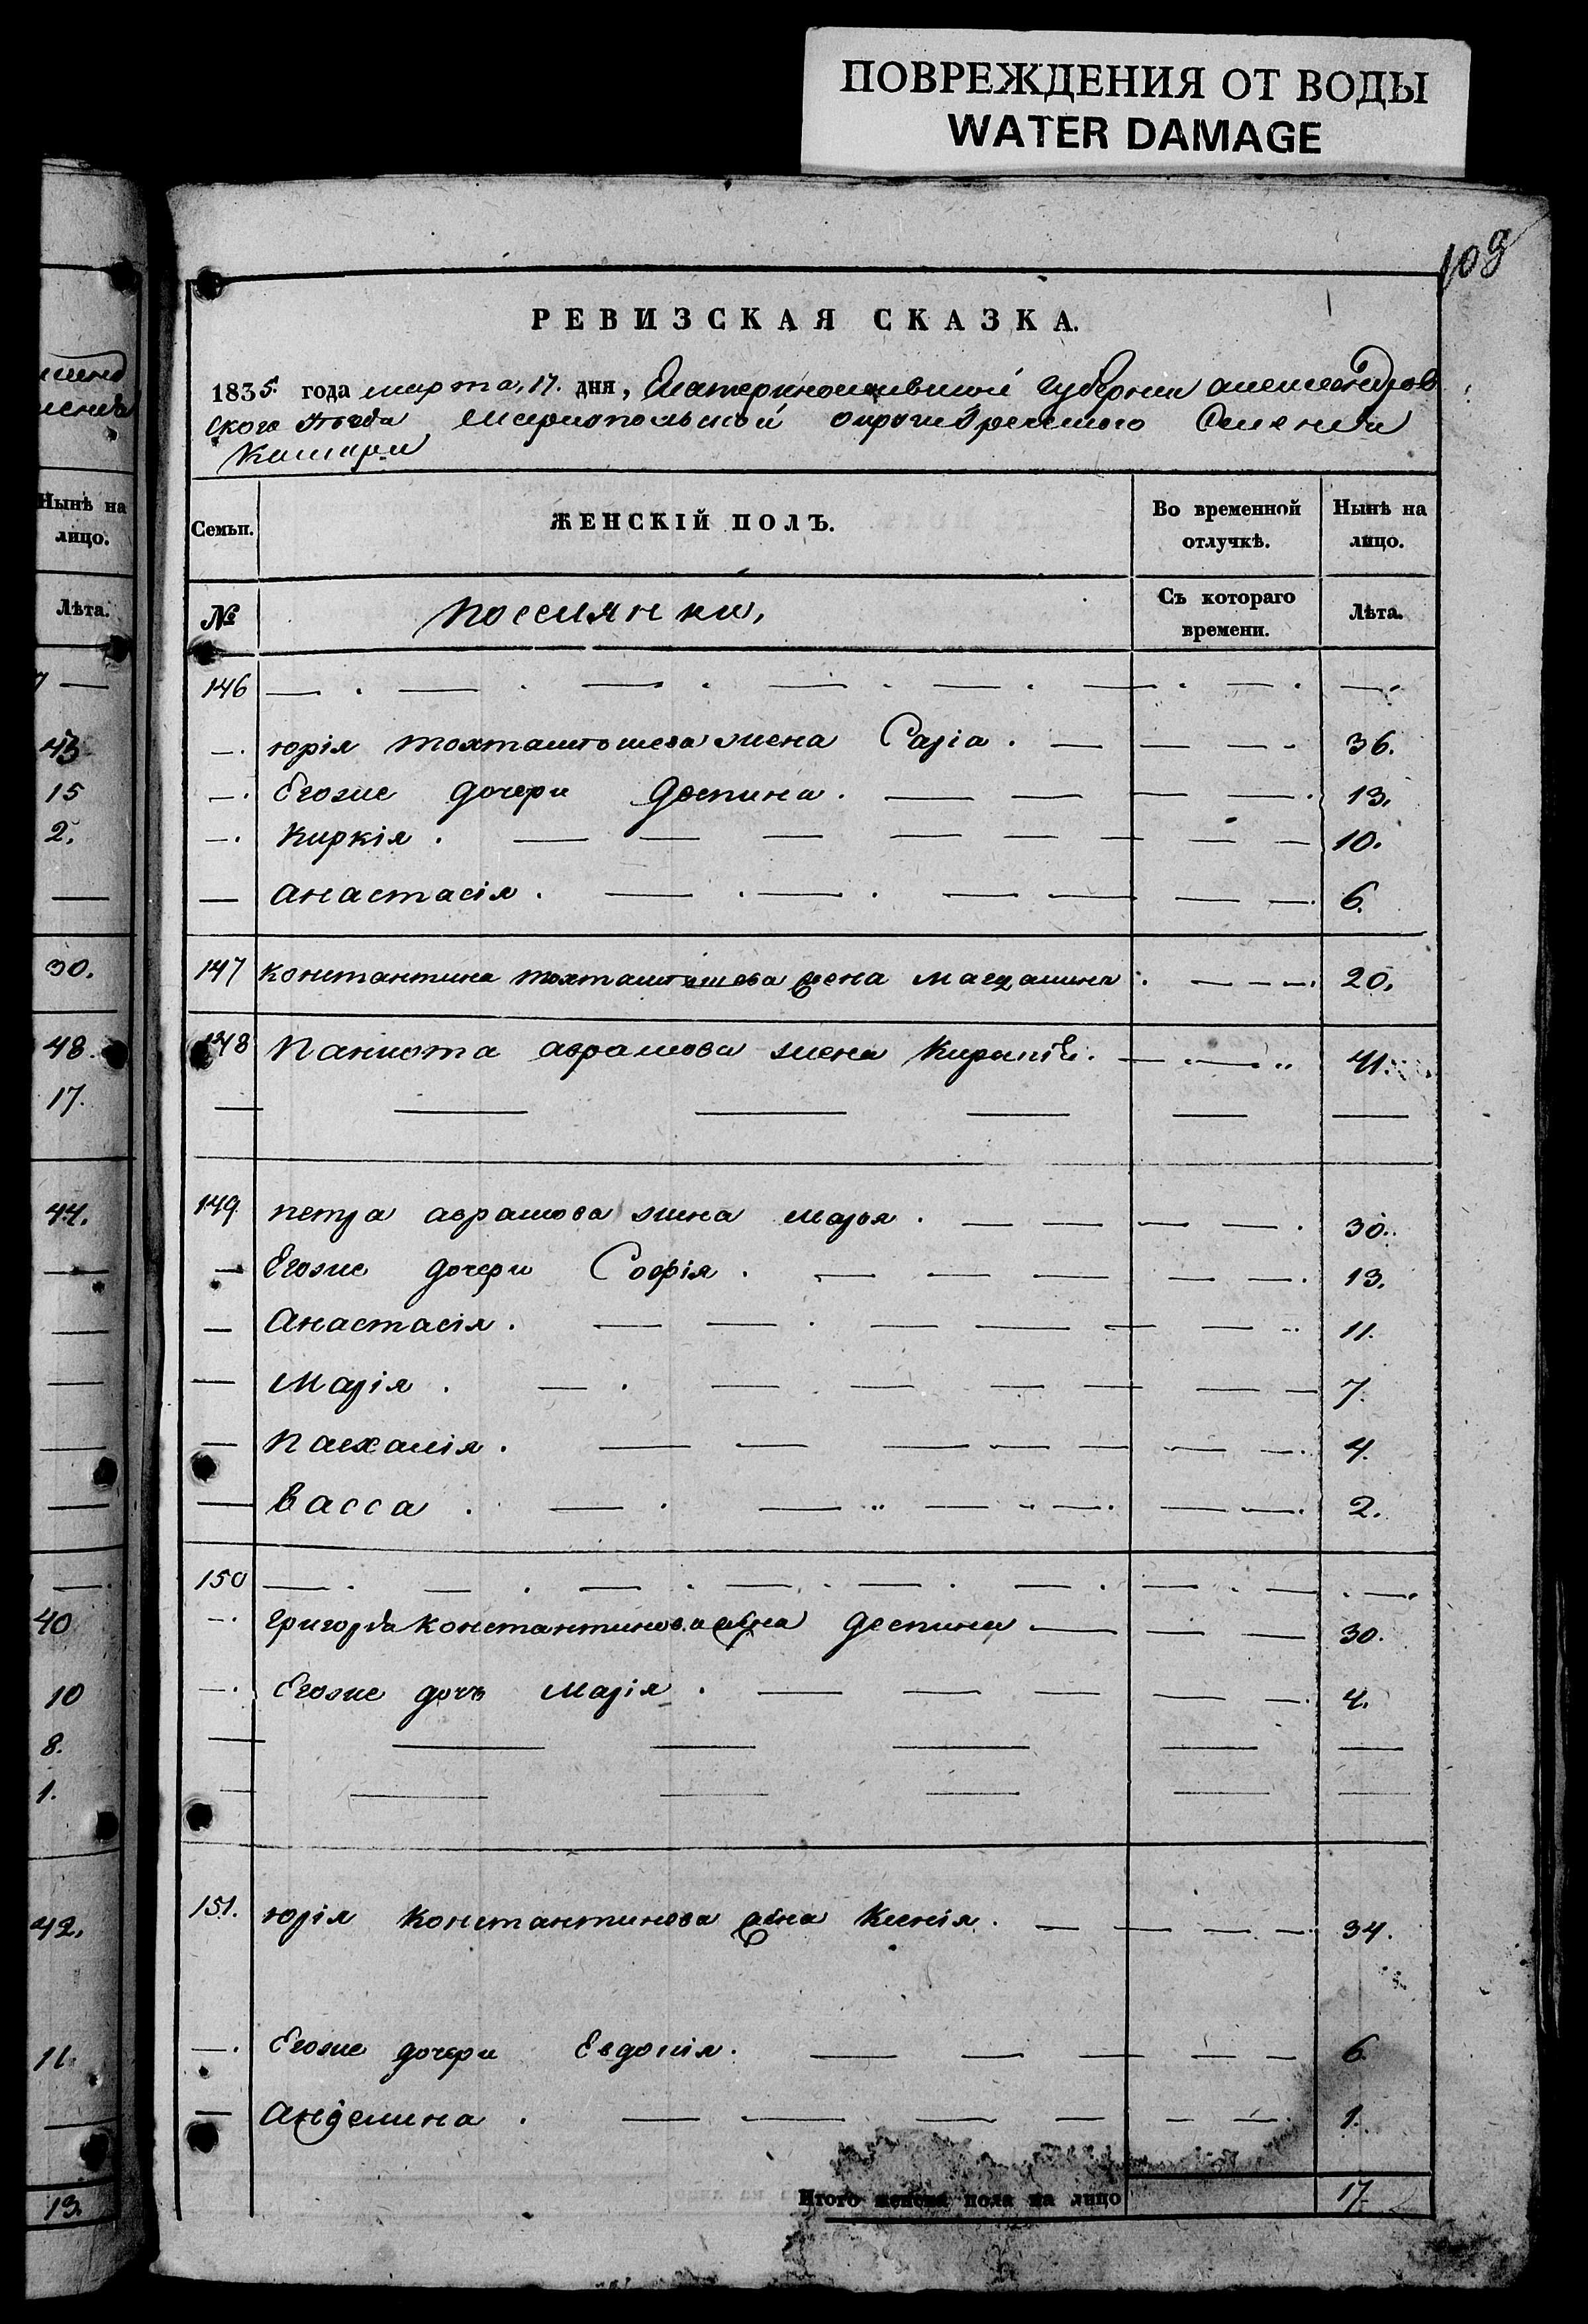 ПОВРЕЖДЕНИЯ ОТ ВОДЫ
WATER DAMAGE
109
РЕВИЗСКАЯ СКАЗКА.
1835 года марта, 17. дня, Екатеринославской губернии александров
ского уезда Мариопольской округи Греческого Селения
Каширы
Нынѣ на лицо.
Лѣта.
43
15
2.
30.
48.
17.
44.
40
10
8.
1.
42.
11.
13.
Семьи. ЖЕНСКІЙ ПОЛЪ. Во временной отлучкѣ. Нынѣ на лицо.
№ поселянки, Съ котораго времени. Лѣта.
146 — . — . — . — . — . — . — . —.
—. юрія тохташтошева жена Саріа . — — — - 36.
—. Егоже дочери Деспина . — — — — . 13.
—. Киркія . — — — — — — — — 10.
— анастасія . — . — . — — — — . 6.
147 константина тохташтошева жена магдалина . — — — . 20.
148 Паниота аврамова жена Кираный . — . — .. 41.
— — — — — —
149 петра аврамова жина марья . — — — — . 30.
— Егоже дочери Софія . — — — — — . 13.
— Анастасія . — — . — — — — .. 11.
— Марія . — . — — — — — — 7.
— Пасхалія . — — — — — — — . 4.
— васса . — . — .. — .. — . — — . 2.
150 — . — . — . — . — . — . — . — . —.
—. григорія константинова жена деспина — — — 30.
—. Егоже дочь Марія . — — — — — . 4.
— — — — — —
— — — — — —
151. юрія Константинова жена Ксенія . — — — — . 34.
—. Егоже дочери Евдокія . — — — — — 6.
— Анделина . — — — — — — . 1.
Итого женска пола на лицо 17.